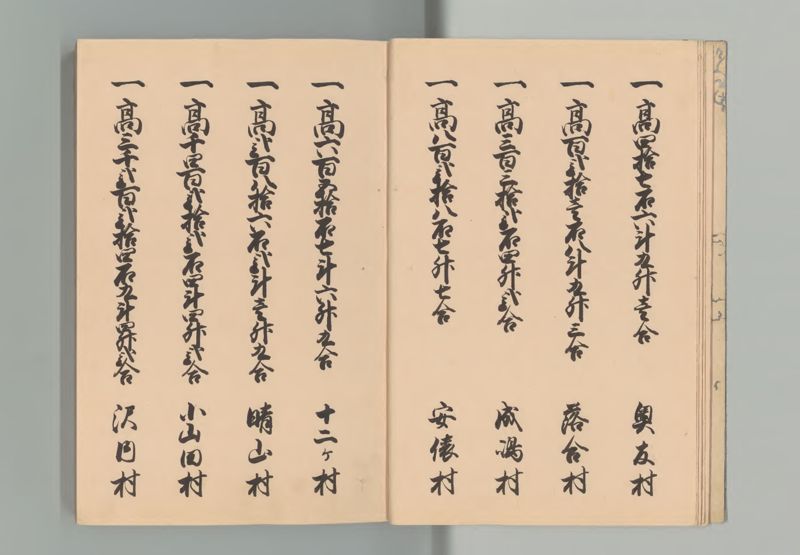 一高四拾七石六斗五升壱合 奥友村
一高百弐拾壱石八斗五升三合 落合村
一高三百三拾弐石四升弐合 成嶋村
一高八百弐拾八石七升七合 安俵村
一高六百五拾石七斗六升五合 十二ヶ村
一高弐百八拾六石弐斗壱升五合 晴山村
一高千四百弐拾弐石四斗四升弐合 小山田村
一高三千弐百弐拾四石五斗四升弐合 沢内村